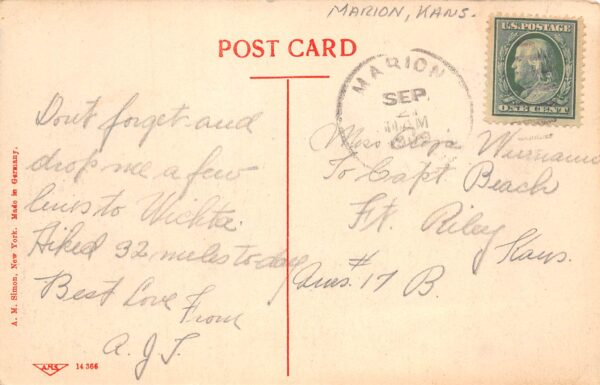 MARION, KANS.
U.S. POSTAGE
ONE CENT
POST CARD
MARION
SEP
Dont forget and
drop me a few
lines to Wichta.
Hiked 32 miles to day
Best Love From
A. J. T.
Miss
To Capt. Beach
Ft. Riley
Kans.
# 17 B.
A. M. Simon, New York. Made in Germany.
AMS
14366